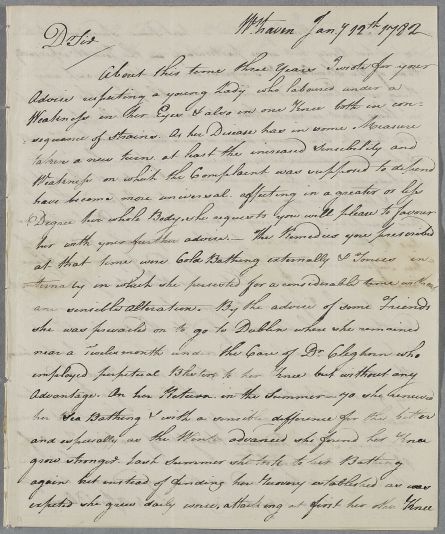 Whaven Jan.y 12th 1782
Dr Sir
About this time three Years I wrote for your
Advice respecting a young Lady who laboured under a
Weakness in her Eyes & also in one Knee both in con-
sequence of Strains. As her Disease has in some Measure
taken a new turn, at least the increased Sensibility and
Weakness on which the Complaint was supposed to depend
have become more universal affecting in a greater or less
Degree her whole Body, she requests you will please to favour
her with your further advice. — The Remedies you prescribed
at that time were Cold Bathing externally & Tonics in-
ternally in which she persisted for a considerable time without
any sensible alteration. By the advice of some Friends
she was prevailed on to go to Dublin where she remained
near a Twelvemonth under the Care of Dr Cleghorn who
employed perpetual Blisters to her Knee but without any
Advantage. On her Return in the Summer she renewed
her Sea Bathing & with a sensible difference for the better
and especially as the Winter advanced she found her Knee
grow stronger. Last Summer she took to her Bathing
again but instead of finding her Recovery established as was
expected she grew daily worse, attacking at first her Knee